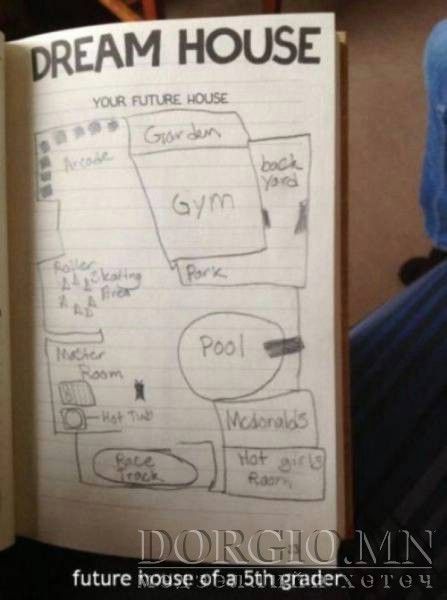 DREAM HOUSE
YOUR FUTURE HOUSE
Giarden
Arcade
back
yard
Gym
Roller
Skating
Area
Park
Pool
Master
Room
Hot Tub
Mcdonald's
Race
Track
Hot girls
Room
DORGIO.MN
future house of a 5th grader